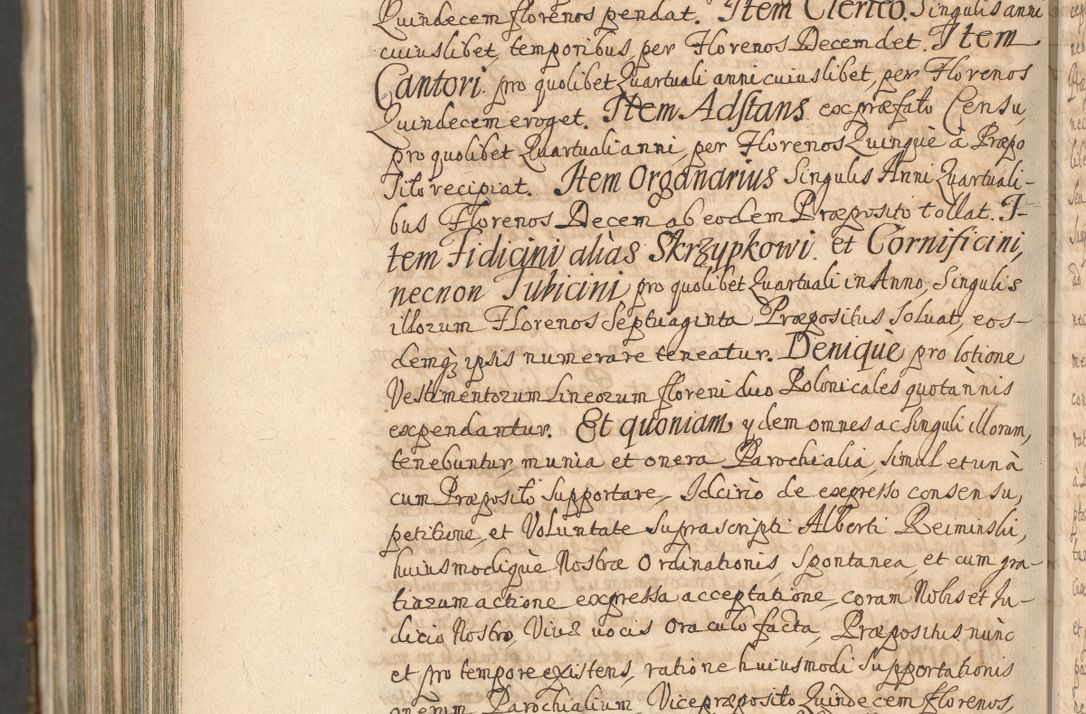 Quindecem florenos pendat. Item Clerico. Singulis anni
cuiuslibet, temporibus per Florenos Decem det. Item
Cantori. pro quolibet Quartuali anni cuiuslibet, per Florenos
Quindecem eroget. Item Adstans ex præfato Censu,
pro quolibet Quartuali anni, per Florenos Quinque à Præpo
sito recipiat. Item Organarius Singulis Anni Quartuali-
bus Florenos Decem ab eodem Præposito tollat. I-
tem Fidicini, aliàs Skrzypkowi. et Cornificini,
necnon Tubicini, pro quolibet Quartuali in Anno, Singulis
illorum Florenos Septuaginta Præpositus Soluat, eos-
demq; ipsis numerare teneatur. Denique pro lotione
Vestimentorum Lineorum floreni duo Polonicales quotannis
expendantur. Et quoniam ydem omnes ac Singuli illorum,
tenebuntur, munia et onera Parochialia, Simul et unà
cum Præposito Supportare, Idcirco de expresso consensu,
petitione, et Voluntate Suprascripti Alberti Reiminski,
huiusmodique Nostræ Ordinationis Spontanea, et cum gra-
tiarum actione expressa acceptatione, coram Nobis et Ju-
dicio Nostro, Viuæ uocis Oraculo facta, Præpositus nunc
et pro tempore existens, ratione huiusmodi Supportationis
onerum Parochialium, Vicepræposito Quindecem florenos,